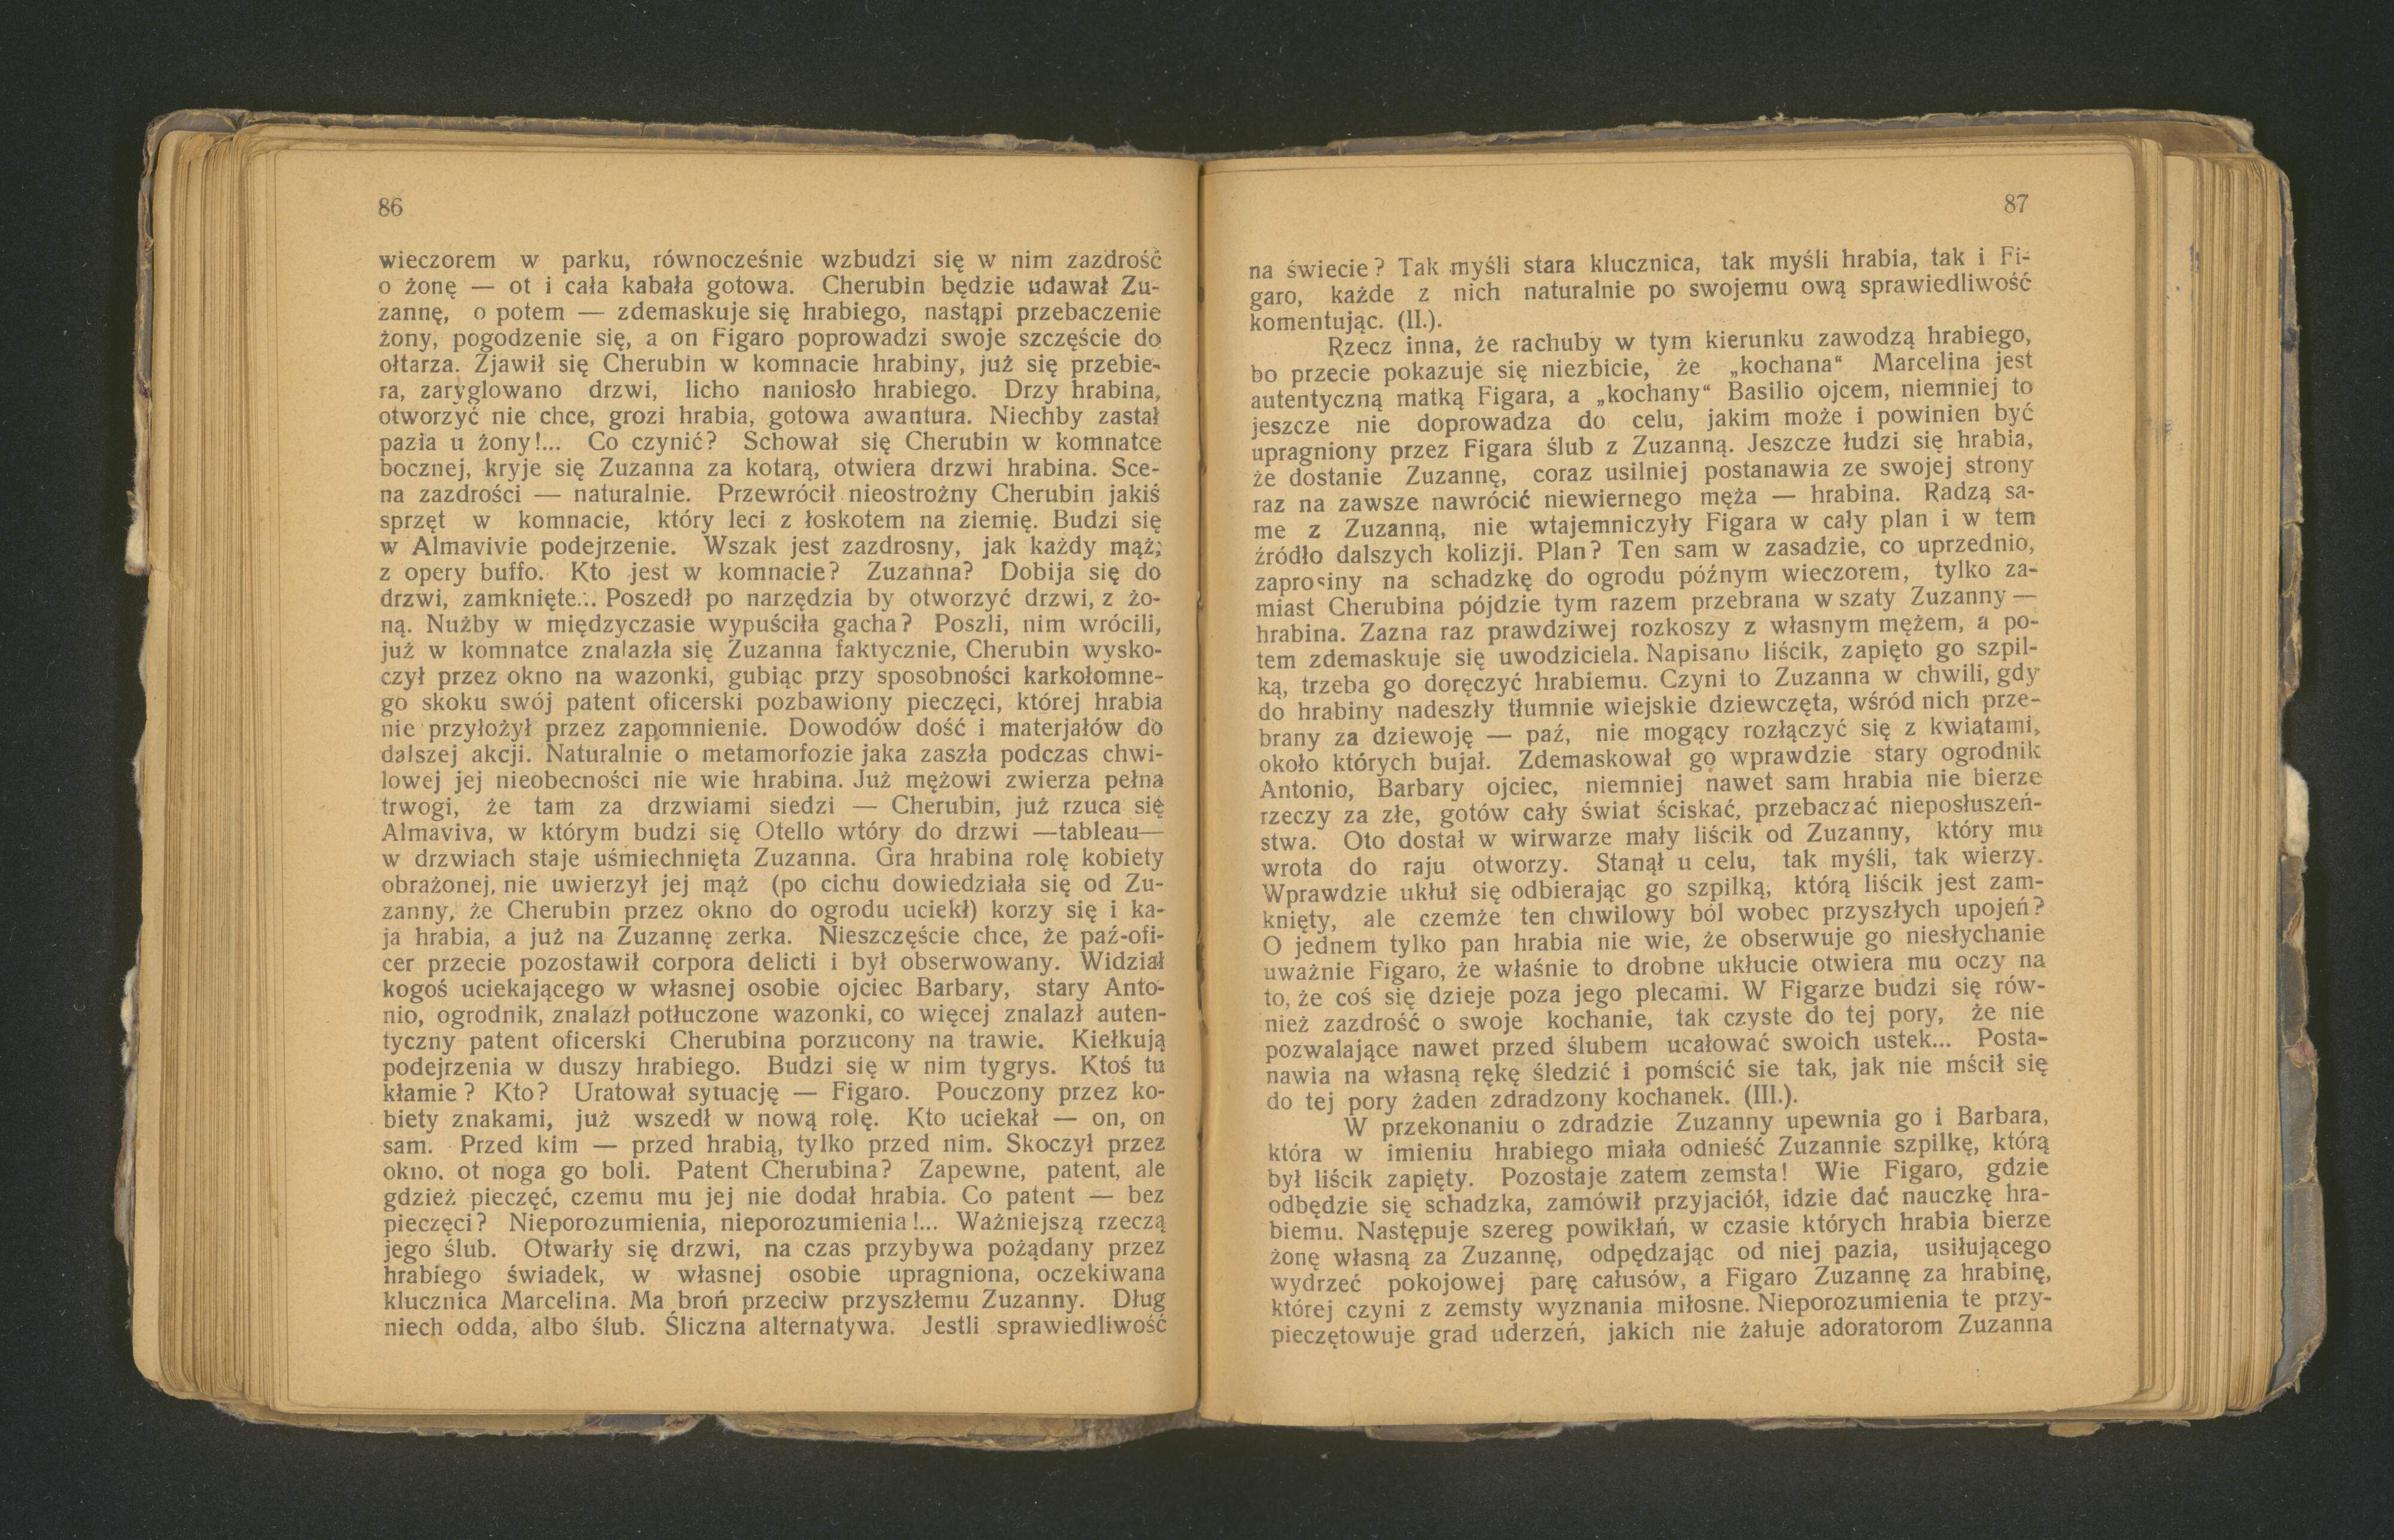 86
wieczorem w parku, równocześnie wzbudzi się w nim zazdrość
o żonę — ot i cała kabała gotowa. Cherubin będzie udawał Zu-
zannę, o potem — zdemaskuje się hrabiego, nastąpi przebaczenie
żony, pogodzenie się, a on Figaro poprowadzi swoje szczęście do
ołtarza. Zjawił się Cherubin w komnacie hrabiny, już się przebie-
ra, zaryglowano drzwi, licho naniosło hrabiego. Drzy hrabina,
otworzyć nie chce, grozi hrabia, gotowa awantura. Niechby zastał
pazia u żony!... Co czynić? Schował się Cherubin w komnatce
bocznej, kryje się Zuzanna za kotarą, otwiera drzwi hrabina. Sce-
na zazdrości — naturalnie. Przewrócił nieostrożny Cherubin jakiś
sprzęt w komnacie, który leci z łoskotem na ziemię. Budzi się
w Almavivie podejrzenie. Wszak jest zazdrosny, jak każdy mąż;
z opery buffo. Kto jest w komnacie? Zuzanna? Dobija się do
drzwi, zamknięte... Poszedł po narzędzia by otworzyć drzwi, z żo-
ną. Nużby w międzyczasie wypuściła gacha? Poszli, nim wrócili,
już w komnatce znalazła się Zuzanna faktycznie, Cherubin wysko-
czył przez okno na wazonki, gubiąc przy sposobności karkołomne-
go skoku swój patent oficerski pozbawiony pieczęci, której hrabia
nie przyłożył przez zapomnienie. Dowodów dość i materjałów do
dalszej akcji. Naturalnie o metamorfozie jaka zaszła podczas chwi-
lowej jej nieobecności nie wie hrabina. Już mężowi zwierza pełna
trwogi, że tam za drzwiami siedzi — Cherubin, już rzuca się
Almaviva, w którym budzi się Otello wtóry do drzwi —tableau—
w drzwiach staje uśmiechnięta Zuzanna. Gra hrabina rolę kobiety
obrażonej, nie uwierzył jej mąż (po cichu dowiedziała się od Zu-
zanny, że Cherubin przez okno do ogrodu uciekł) korzy się i ka-
ja hrabia, a już na Zuzannę zerka. Nieszczęście chce, że paź-ofi-
cer przecie pozostawił corpora delicti i był obserwowany. Widział
kogoś uciekającego w własnej osobie ojciec Barbary, stary Anto-
nio, ogrodnik, znalazł potłuczone wazonki, co więcej znalazł auten-
tyczny patent oficerski Cherubina porzucony na trawie. Kiełkują
podejrzenia w duszy hrabiego. Budzi się w nim tygrys. Ktoś tu
kłamie? Kto? Uratował sytuację — Figaro. Pouczony przez ko-
biety znakami, już wszedł w nową rolę. Kto uciekał — on, on
sam. Przed kim — przed hrabią, tylko przed nim. Skoczył przez
okno. ot noga go boli. Patent Cherubina? Zapewne, patent, ale
gdzież pieczęć, czemu mu jej nie dodał hrabia. Co patent — bez
pieczęci? Nieporozumienia, nieporozumienia!... Ważniejszą rzeczą
jego ślub. Otwarły się drzwi, na czas przybywa pożądany przez
hrabiego świadek, w własnej osobie upragniona, oczekiwana
klucznica Marcelina. Ma broń przeciw przyszłemu Zuzanny. Dług
niech odda, albo ślub. Śliczna alternatywa. Jestli sprawiedliwość
87
na świecie? Tak myśli stara klucznica, tak myśli hrabia, tak i Fi-
garo, każde z nich naturalnie po swojemu ową sprawiedliwość
komentując. (II.).
Rzecz inna, że rachuby w tym kierunku zawodzą hrabiego,
bo przecie pokazuje się niezbicie, że „kochana“ Marcelina jest
autentyczną matką Figara, a „kochany“ Basilio ojcem, niemniej to
jeszcze nie doprowadza do celu, jakim może i powinien być
upragniony przez Figara ślub z Zuzanną. Jeszcze łudzi się hrabia,
że dostanie Zuzannę, coraz usilniej postanawia ze swojej strony
raz na zawsze nawrócić niewiernego męża — hrabina. Radzą sa-
me z Zuzanną, nie wtajemniczyły Figara w cały plan i w tem
źródło dalszych kolizji. Plan? Ten sam w zasadzie, co uprzednio,
zaprosiny na schadzkę do ogrodu późnym wieczorem, tylko za-
miast Cherubina pójdzie tym razem przebrana w szaty Zuzanny —
hrabina. Zazna raz prawdziwej rozkoszy z własnym mężem, a po-
tem zdemaskuje się uwodziciela. Napisano liścik, zapięto go szpil-
ką, trzeba go doręczyć hrabiemu. Czyni to Zuzanna w chwili, gdy
do hrabiny nadeszły tłumnie wiejskie dziewczęta, wśród nich prze-
brany za dziewoję — paź, nie mogący rozłączyć się z kwiatami,
około których bujał. Zdemaskował go wprawdzie stary ogrodnik
Antonio, Barbary ojciec, niemniej nawet sam hrabia nie bierze
rzeczy za złe, gotów cały świat ściskać, przebaczać nieposłuszeń-
stwa. Oto dostał w wirwarze mały liścik od Zuzanny, który mu
wrota do raju otworzy. Stanął u celu, tak myśli, tak wierzy.
Wprawdzie ukłuł się odbierając go szpilką, którą liścik jest zam-
knięty, ale czemże ten chwilowy ból wobec przyszłych upojeń?
O jednem tylko pan hrabia nie wie, że obserwuje go niesłychanie
uważnie Figaro, że właśnie to drobne ukłucie otwiera mu oczy na
to, że coś się dzieje poza jego plecami. W Figarze budzi się rów-
nież zazdrość o swoje kochanie, tak czyste do tej pory, że nie
pozwalające nawet przed ślubem ucałować swoich ustek... Posta-
nawia na własną rękę śledzić i pomścić sie tak, jak nie mścił się
do tej pory żaden zdradzony kochanek. (III.).
W przekonaniu o zdradzie Zuzanny upewnia go i Barbara,
która w imieniu hrabiego miała odnieść Zuzannie szpilkę, którą
był liścik zapięty. Pozostaje zatem zemsta! Wie Figaro, gdzie
odbędzie się schadzka, zamówił przyjaciół, idzie dać nauczkę hra-
biemu. Następuje szereg powikłań, w czasie których hrabia bierze
żonę własną za Zuzannę, odpędzając od niej pazia, usiłującego
wydrzeć pokojowej parę całusów, a Figaro Zuzannę za hrabinę,
której czyni z zemsty wyznania miłosne. Nieporozumienia te przy-
pieczętowuje grad uderzeń, jakich nie żałuje adoratorom Zuzanna